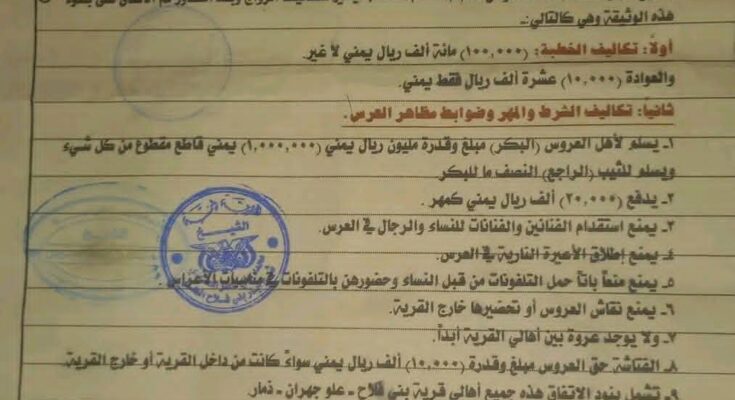 هذه الوثيقة وهي كالتالي:ـ
أولاً: تكاليف الخطبة: (١٠٠,٠٠٠) مائة ألف ريال يمني لا غير.
والعوادة (١٠,٠٠٠) عشرة ألف ريال فقط يمني.
ثانياً: تكاليف الشرط والمهر وضوابط مظاهر العرس.
١ـ يسلم لأهل العروس (البكر) مبلغ وقدرة مليون ريال يمني (١,٠٠٠,٠٠٠) يمني قاطع مقطوع من كل شيء
ويسلم للثيب (الراجع) النصف ما للبكر
٢ـ يدفع (٢٠,٠٠٠) ألف ريال يمني كمهر.
٣ـ يمنع استقدام الفنانين والفنانات للنساء والرجال في العرس.
٤ـ يمنع إطلاق الأعيرة النارية في العرس.
٥ـ يمنع منعاً باتاً حمل التلفونات من قبل النساء وحضورهن بالتلفونات في مناسبات الأعراس.
٦ـ يمنع نقاش العروس أو تحضيرها خارج القرية.
٧ـ ولا يوجد عروة بين أهالي القرية أبداً.
٨ـ الفتاشة حق العروس مبلغ وقدرة (١٠,٠٠٠) ألف ريال يمني سواءً كانت من داخل القرية أو خارج القرية
٩ـ تشمل بنود الاتفاق هذه جميع أهالي قرية بني فلاح ـ علو جهران ـ ذمار.
الشيخ